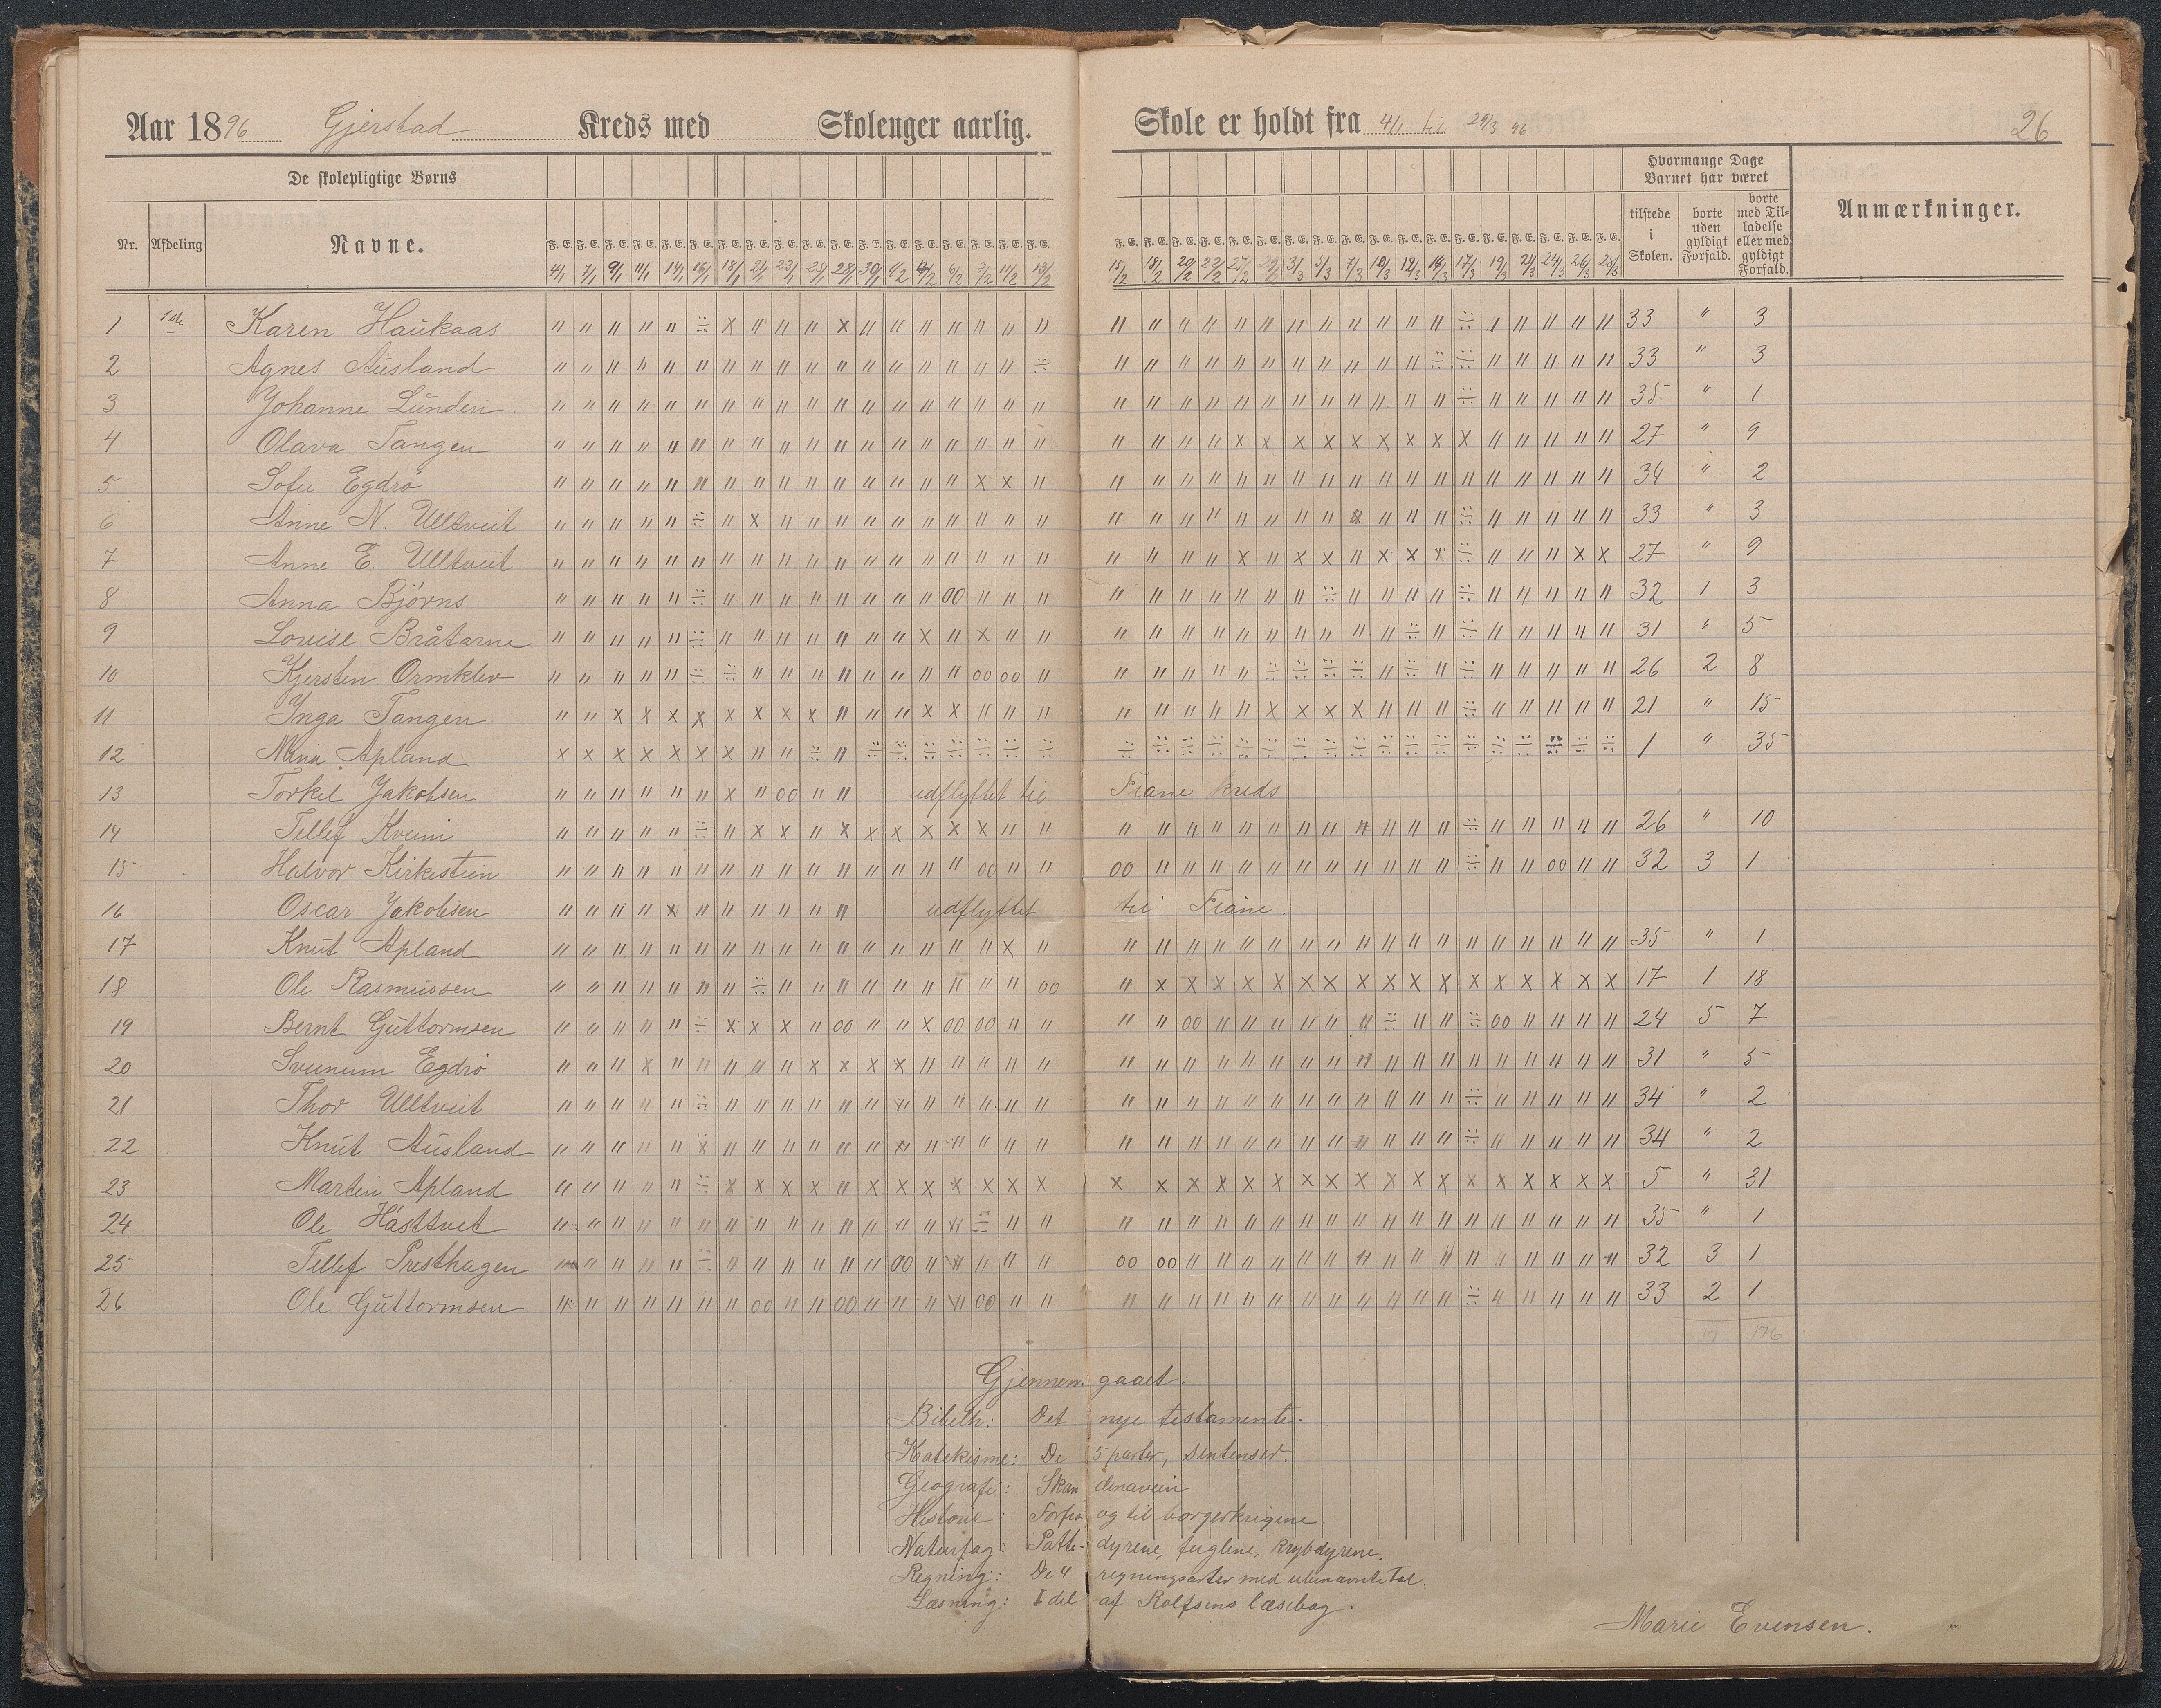 Aar 1896 Gjerstad Kreds med Skolenger aarlig. Skole er holdt fra 4/1 til 29/3 96. 26
De skolepligtige Børns
Hvormange Dage Barnet har været
Nr. Afdeling Navne. tilstede i Skolen. borte uden gyldigt Forfald. borte med Tilladelse eller med gyldigt Forfald. Anmærkninger.
1 1ste Karen Haukaas 33 " 3
2 Agnes Ausland 33 " 3
3 Johanne Lunden 35 " 1
4 Olava Tangen 27 " 9
5 Sofie Egdrö 34 " 2
6 Anne N. Ulltveit 33 " 3
7 Anne E. Ulltveit 27 " 9
8 Anna Björns 32 1 3
9 Lovise Bråtarne 31 " 5
10 Kjersten Ormklev 26 2 8
11 Inga Tangen 21 " 15
12 Mina Apland 1 " 35
13 Torkel Jakobsen udflyttet til Fiane kreds
14 Tellef Kveim 26 " 10
15 Halvor Kirkestein 32 3 1
16 Oscar Jakobsen udflyttet til Fiane.
17 Knut Apland 35 " 1
18 Ole Rasmussen 17 1 18
19 Bernt Guttormsen 24 5 7
20 Sveinum Egdrö 31 " 5
21 Thor Ulltveit 34 " 2
22 Knut Ausland 34 " 2
23 Martin Apland 5 " 31
24 Ole Hásttvet 35 " 1
25 Tellef Presthagen 32 3 1
26 Ole Guttormsen 33 2 1
17 176
Gjennemgaaet:
Bibelh: Det nye testamente.
Katekisme: De 5 parter, sentenser.
Geografi: Skandenavien
Historie: Forfra og til borgerkrigene.
Naturfag: Pattedyrene, fuglene, krybdyrene.
Regning: De 4 regningsarter med ubenævnte tal.
Læsning: I del af Rolfsens læsebog.
Marie Evensen.